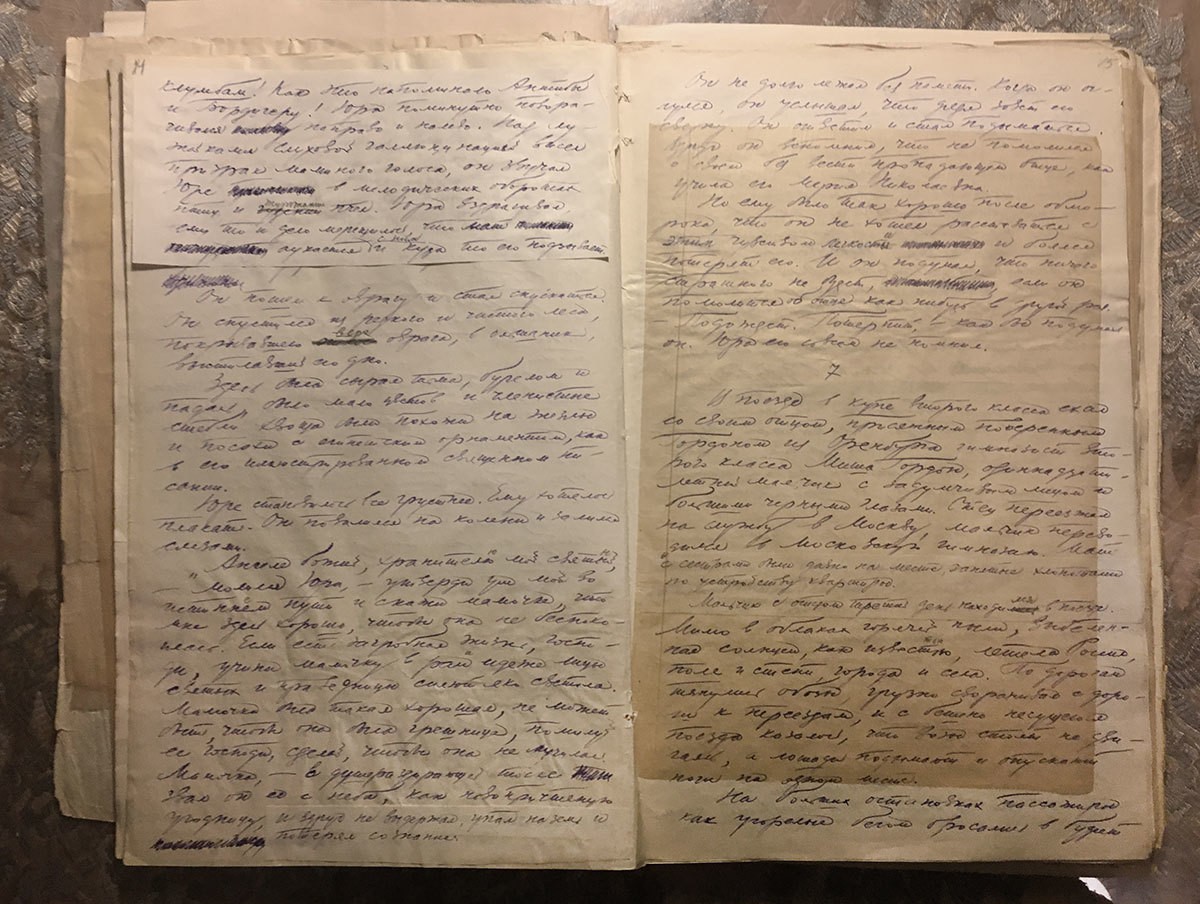 14
клумбам! Как это напоминало Антибы
и Бордигеру! Юра поминутно повора-
чивался направо и налево. Над лу-
жайками слуховой галлюцинацией висел
призрак маминого голоса, он звучал
Юре в мелодических оборотах
птиц и жужжании пчел. Юра вздрагивал
ему то и дело мерещилось, что мать
аукается с ним и куда то его подзывает.
Он пошел к оврагу и стал спускаться.
Он спустился из редкого и чистого леса,
покрывавшего верх оврага, в ольшаник,
выстилавший его дно.
Здесь была сырая тьма, бурелом и
падаль, было мало цветов и членистые
стебли хвоща были похожи на жезлы
и посохи с египетским орнаментом, как
в его иллюстрированном священном пи-
сании.
Юре становилось все грустней. Ему хотелось
плакать. Он повалился на колени и залился
слезами.
— Ангеле божий, хранителю мой святый,
— молился Юра, — утверди ум мой во
истиннем пути и скажи мамочке, что
мне здесь хорошо, чтобы она не беспоко-
илась. Если есть загробная жизнь, Госпо-
ди, учини мамочку в рай идеже лицы
святых и праведницы сияют яко светила.
Мамочка была такая хорошая, не может
быть, чтобы она была грешница, помилуй
ее Господи, сделай, чтобы она не мучилась.
Мамочка, — в душераздирающей тоске
звал он ее с неба, как новопричтенную
угодницу, и вдруг не выдержал, упал наземь и
потерял сознание.
15
Он не долго лежал без памяти. Когда он оч-
нулся, он услышал, что дядя зовет его
сверху. Он ответил и стал подыматься.
Вдруг он вспомнил, что не помолился
о своем без вести пропадающем отце, как
учила его Мария Николаевна.
Но ему было так хорошо после обмо-
рока, что он не хотел расставаться с
этим чувством легкости и боялся
потерять его. И он подумал, что ничего
страшного не будет, если он
помолится об отце как нибудь в другой раз.
— Подождет. Потерпит, — как бы подумал
он. Юра его совсем не помнил.
7
В поезде в купе второго класса ехал
со своим отцом, присяжным поверенным
Гордоном из Оренбурга гимназист вто-
рого класса Миша Гордон, одиннадцати-
летний мальчик с задумчивым лицом и
большими черными глазами. Отец переезжал
на службу в Москву, мальчик перево-
дился в Московскую гимназию. Мать
с сестрами были давно на месте, занятые хлопотами
по устройству квартиры.
Мальчик с отцом третий день находились в поезде.
Мимо в облаках горячей пыли, выбелен-
ная солнцем, как известью, летела Россия,
поля и степи, города и села. По дорогам
тянулись обозы, грузно сворачивая с доро-
ги к переездам, и с бешено несущегося
поезда казалось, что возы стоят не дви-
гаясь, а лошади подымают и опускают
ноги на одном месте.
На больших остановках пассажиры
как угорелые бегом бросались в буфет